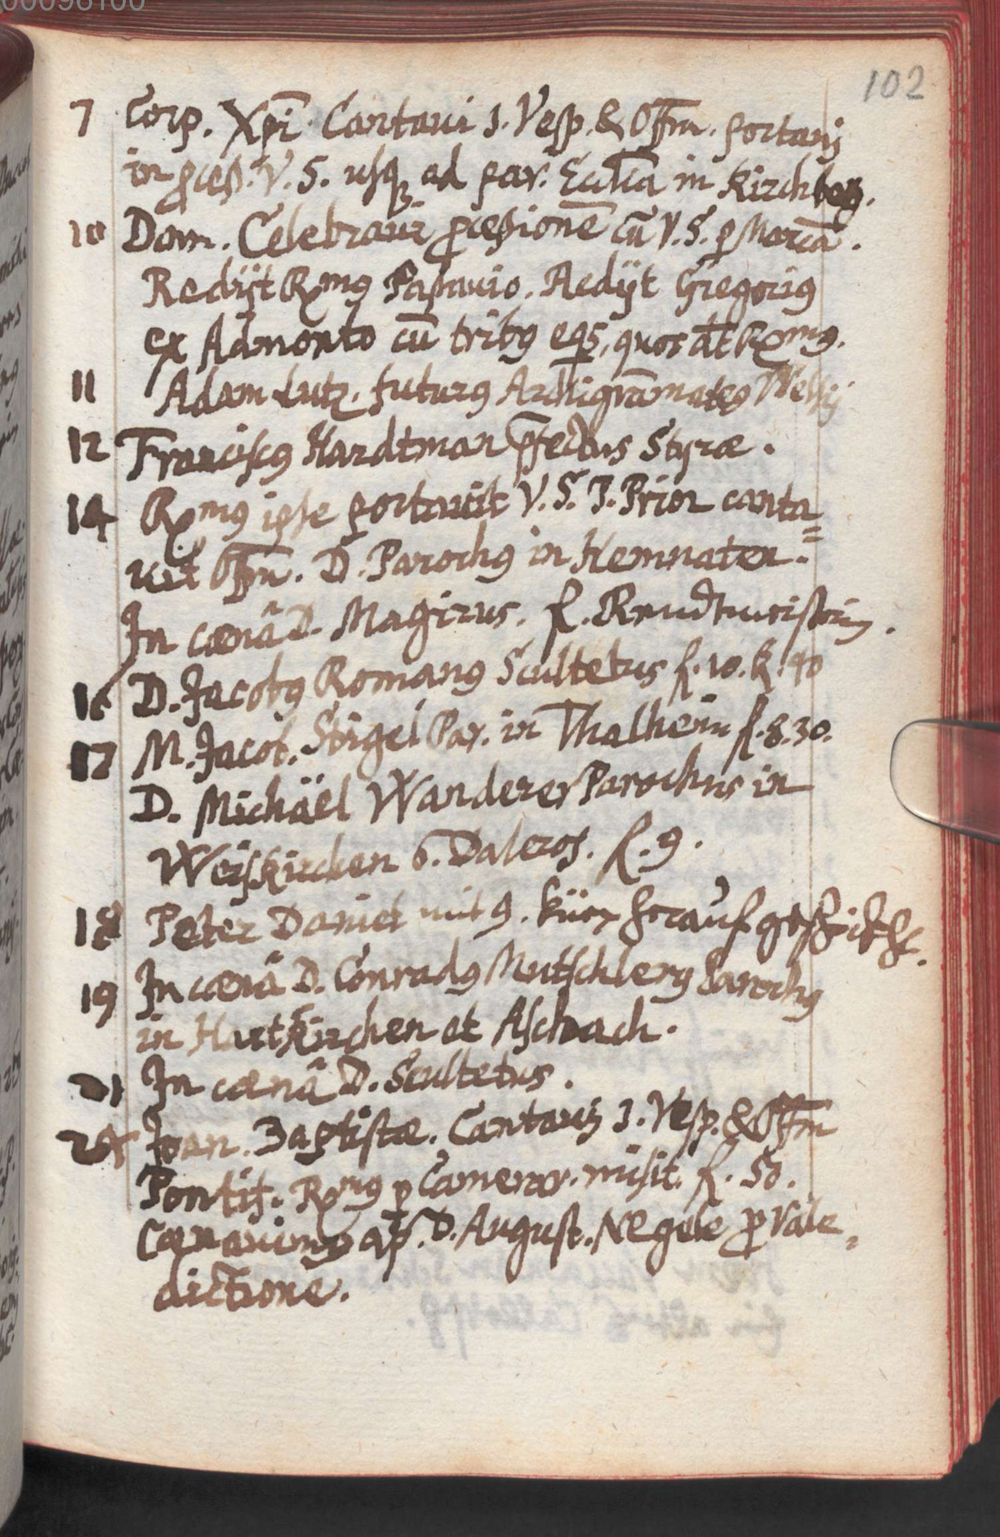 00096100
102
7 Corp. Xp̄i. Cantaui 1. Vesp. & Offm. portavi
in p̱ceß. V. S. usq̨ ad par. Ecclīa in Kirchberg.
10 Dom. Celebraui p̱ceßionē cū V. S. p̱ Marca.
Redijt Rmꝰ Paßauio. Redijt Gregoriꝰ
ex Admonto cū tribꝰ eqs, quos Rmꝰ.
11 Adam Lutz. futurꝰ Archigrāmateꝰ
12 Franciscꝰ Hardtman p̄fectus Styræ.
14 Rmꝰ ipse portauit V. S. P. Prior canta=
uit Offm. D. Parochꝰ in Kemnaten.
In cœnâ D. Magirus. f.
16 D. Jacobꝰ Romanꝰ Scultetus f. 10. k. 40
17 M. Jacob. Stigel Par. in Thalheim f. 8. 30.
D. Michäel Wanderer Parochus in
Weiskirchen 6. Daleros. f. 9.
18 Peter Daniel mit 9. herauf geschickht.
19 In cœnâ D. Conradꝰ Mutschlerꝰ Parochꝰ
in Hartkirchen et Aschach.
21 In cœnâ D. Scultetus.
24 Joan. Baptistæ. Cantaui 1. Vesp. & Offm
Pontif. Rmꝰ p̱ Camerar. misit. f. 50.
Cœnauimꝰ ap. D. August. Negele p̱ vale=
dictione.